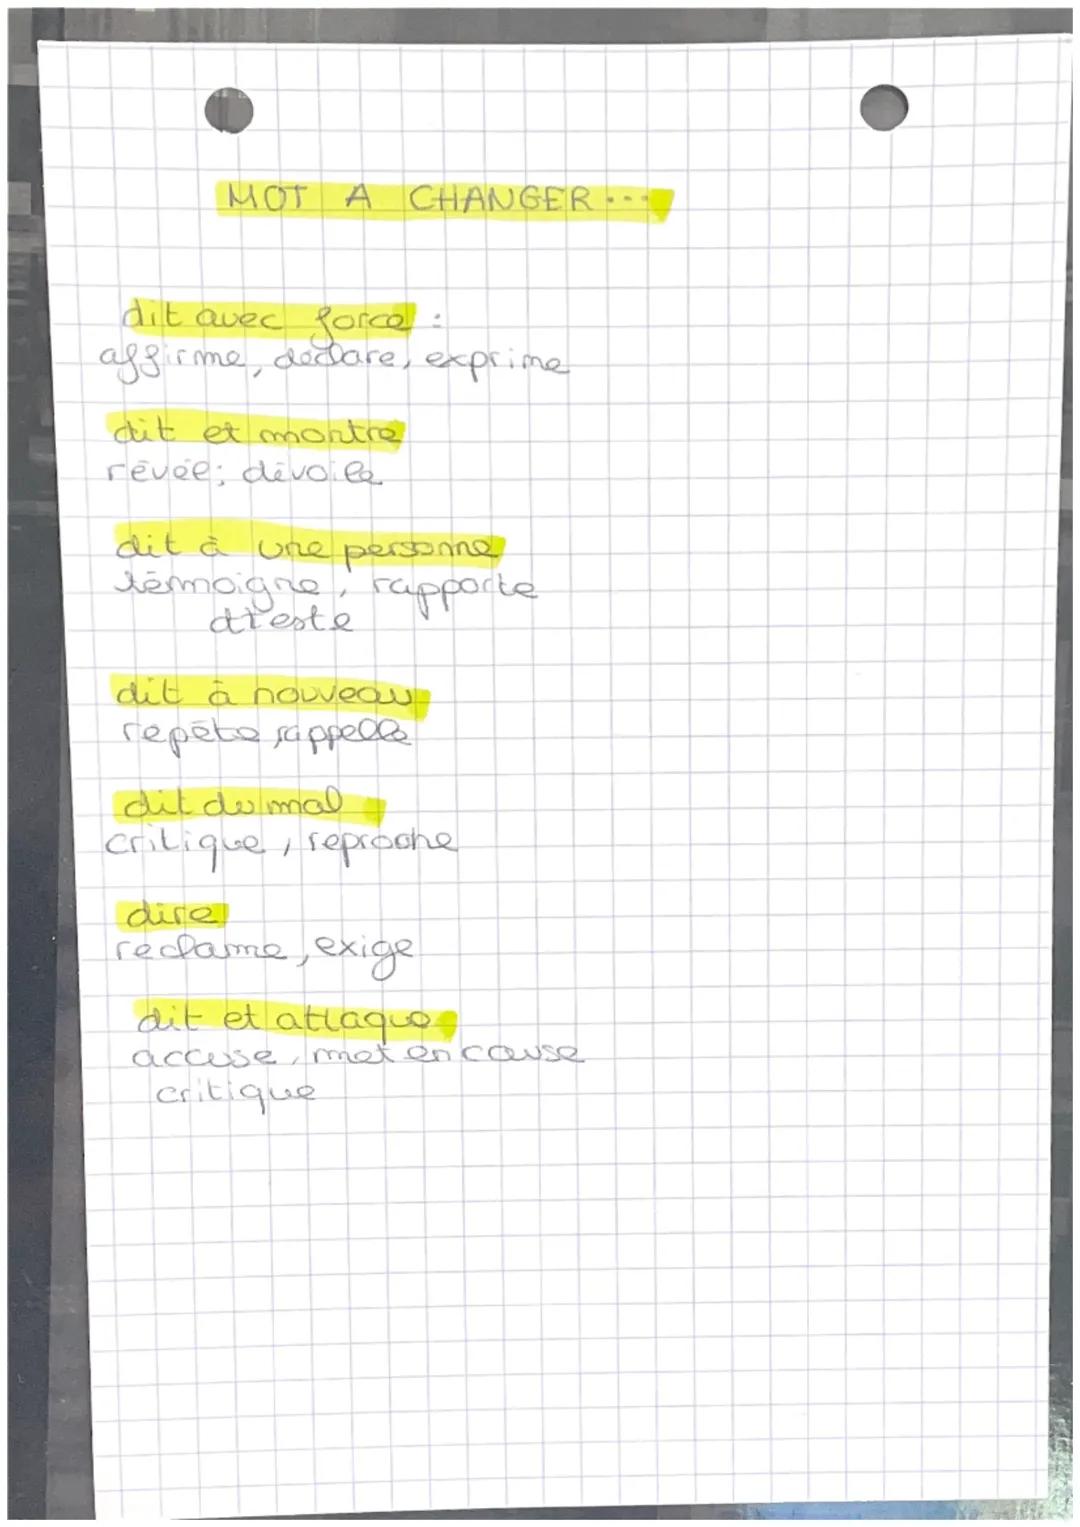 MOT A CHANGER...
dit avec force :
affirme, déclare, exprime
dit et montre
révèl; dévoile
dit à une personne
témoigne, rapporte
atteste
dit à nouveau
repète, rappelle
dit du mal
critique, reproche
dire
reclame, exige
dit et attaque
accuse, met en cause
critique